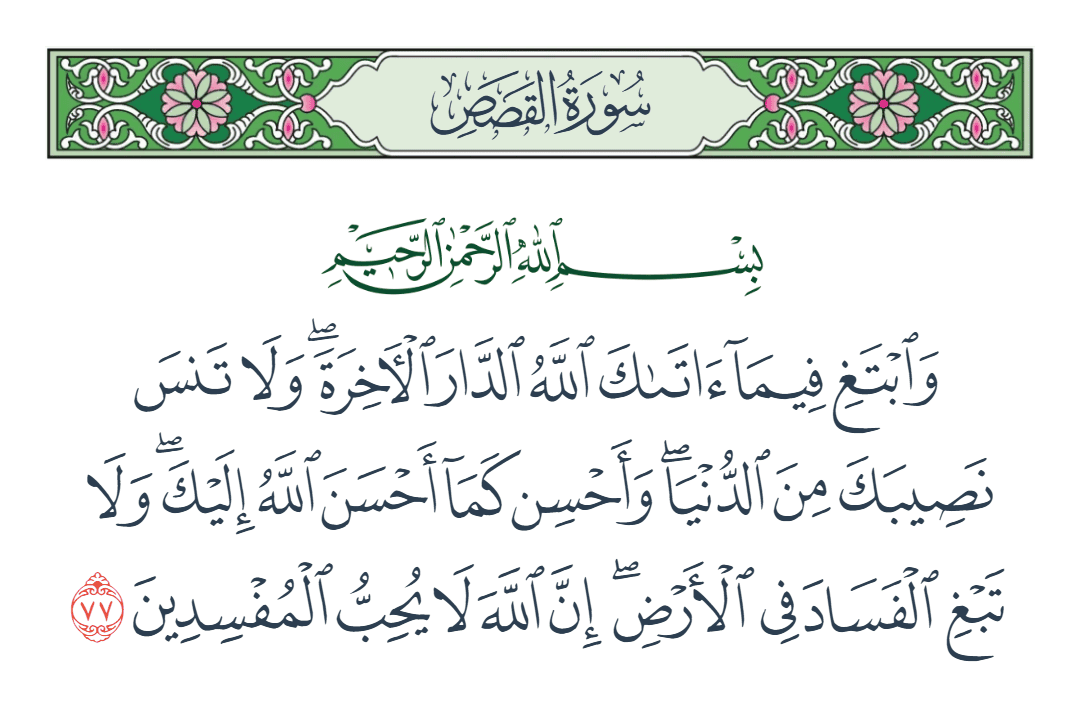 سُورَةُ القَصَصِ
بِسْمِ ٱللَّهِ ٱلرَّحْمَٰنِ ٱلرَّحِيمِ
وَٱبْتَغِ فِيمَآ ءَاتَىٰكَ ٱللَّهُ ٱلدَّارَ ٱلْأَخِرَةَ ۖ وَلَا تَنسَ
نَصِيبَكَ مِنَ ٱلدُّنْيَا ۖ وَأَحْسِن كَمَآ أَحْسَنَ ٱللَّهُ إِلَيْكَ ۖ وَلَا
تَبْغِ ٱلْفَسَادَ فِى ٱلْأَرْضِ ۖ إِنَّ ٱللَّهَ لَا يُحِبُّ ٱلْمُفْسِدِينَ ٧٧